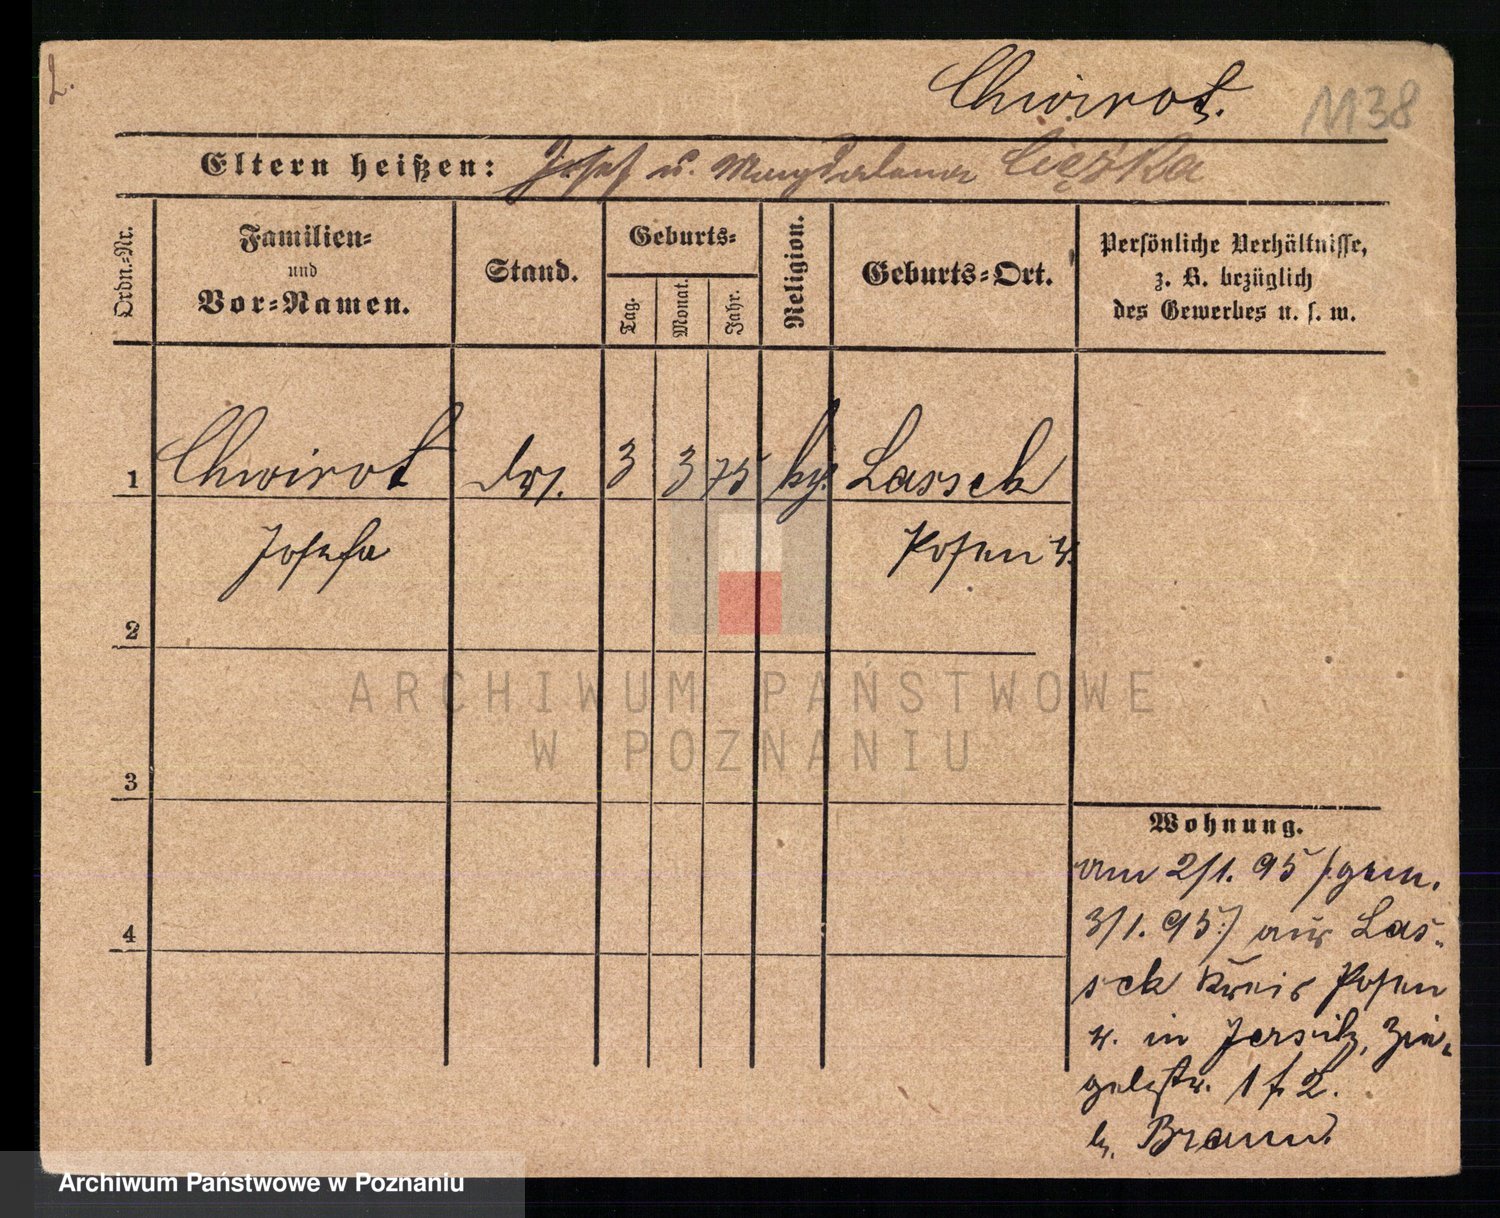 2.
Chwirot.
1138
Eltern heißen: Josef u. Magdalena Ciężka
Ordn.-Nr.
Familien-
und
Vor-Namen.
Stand.
Geburts-
Tag.
Monat.
Jahr.
Religion.
Geburts-Ort.
Persönliche Verhältnisse,
z. B. bezüglich
des Gewerbes u. s. w.
1 Chwirot 3 3 75 Lassek
Josefa Posen w.
2
3
4
Wohnung.
am 2/1. 95 /:gem.
3/1. 95:/ aus Las-
sek Kreis Posen
w. in Jersitz, Zie-
gelstr. 1 f 2.
b. Braun.
ARCHIWUM PAŃSTWOWE
W POZNANIU
Archiwum Państwowe w Poznaniu